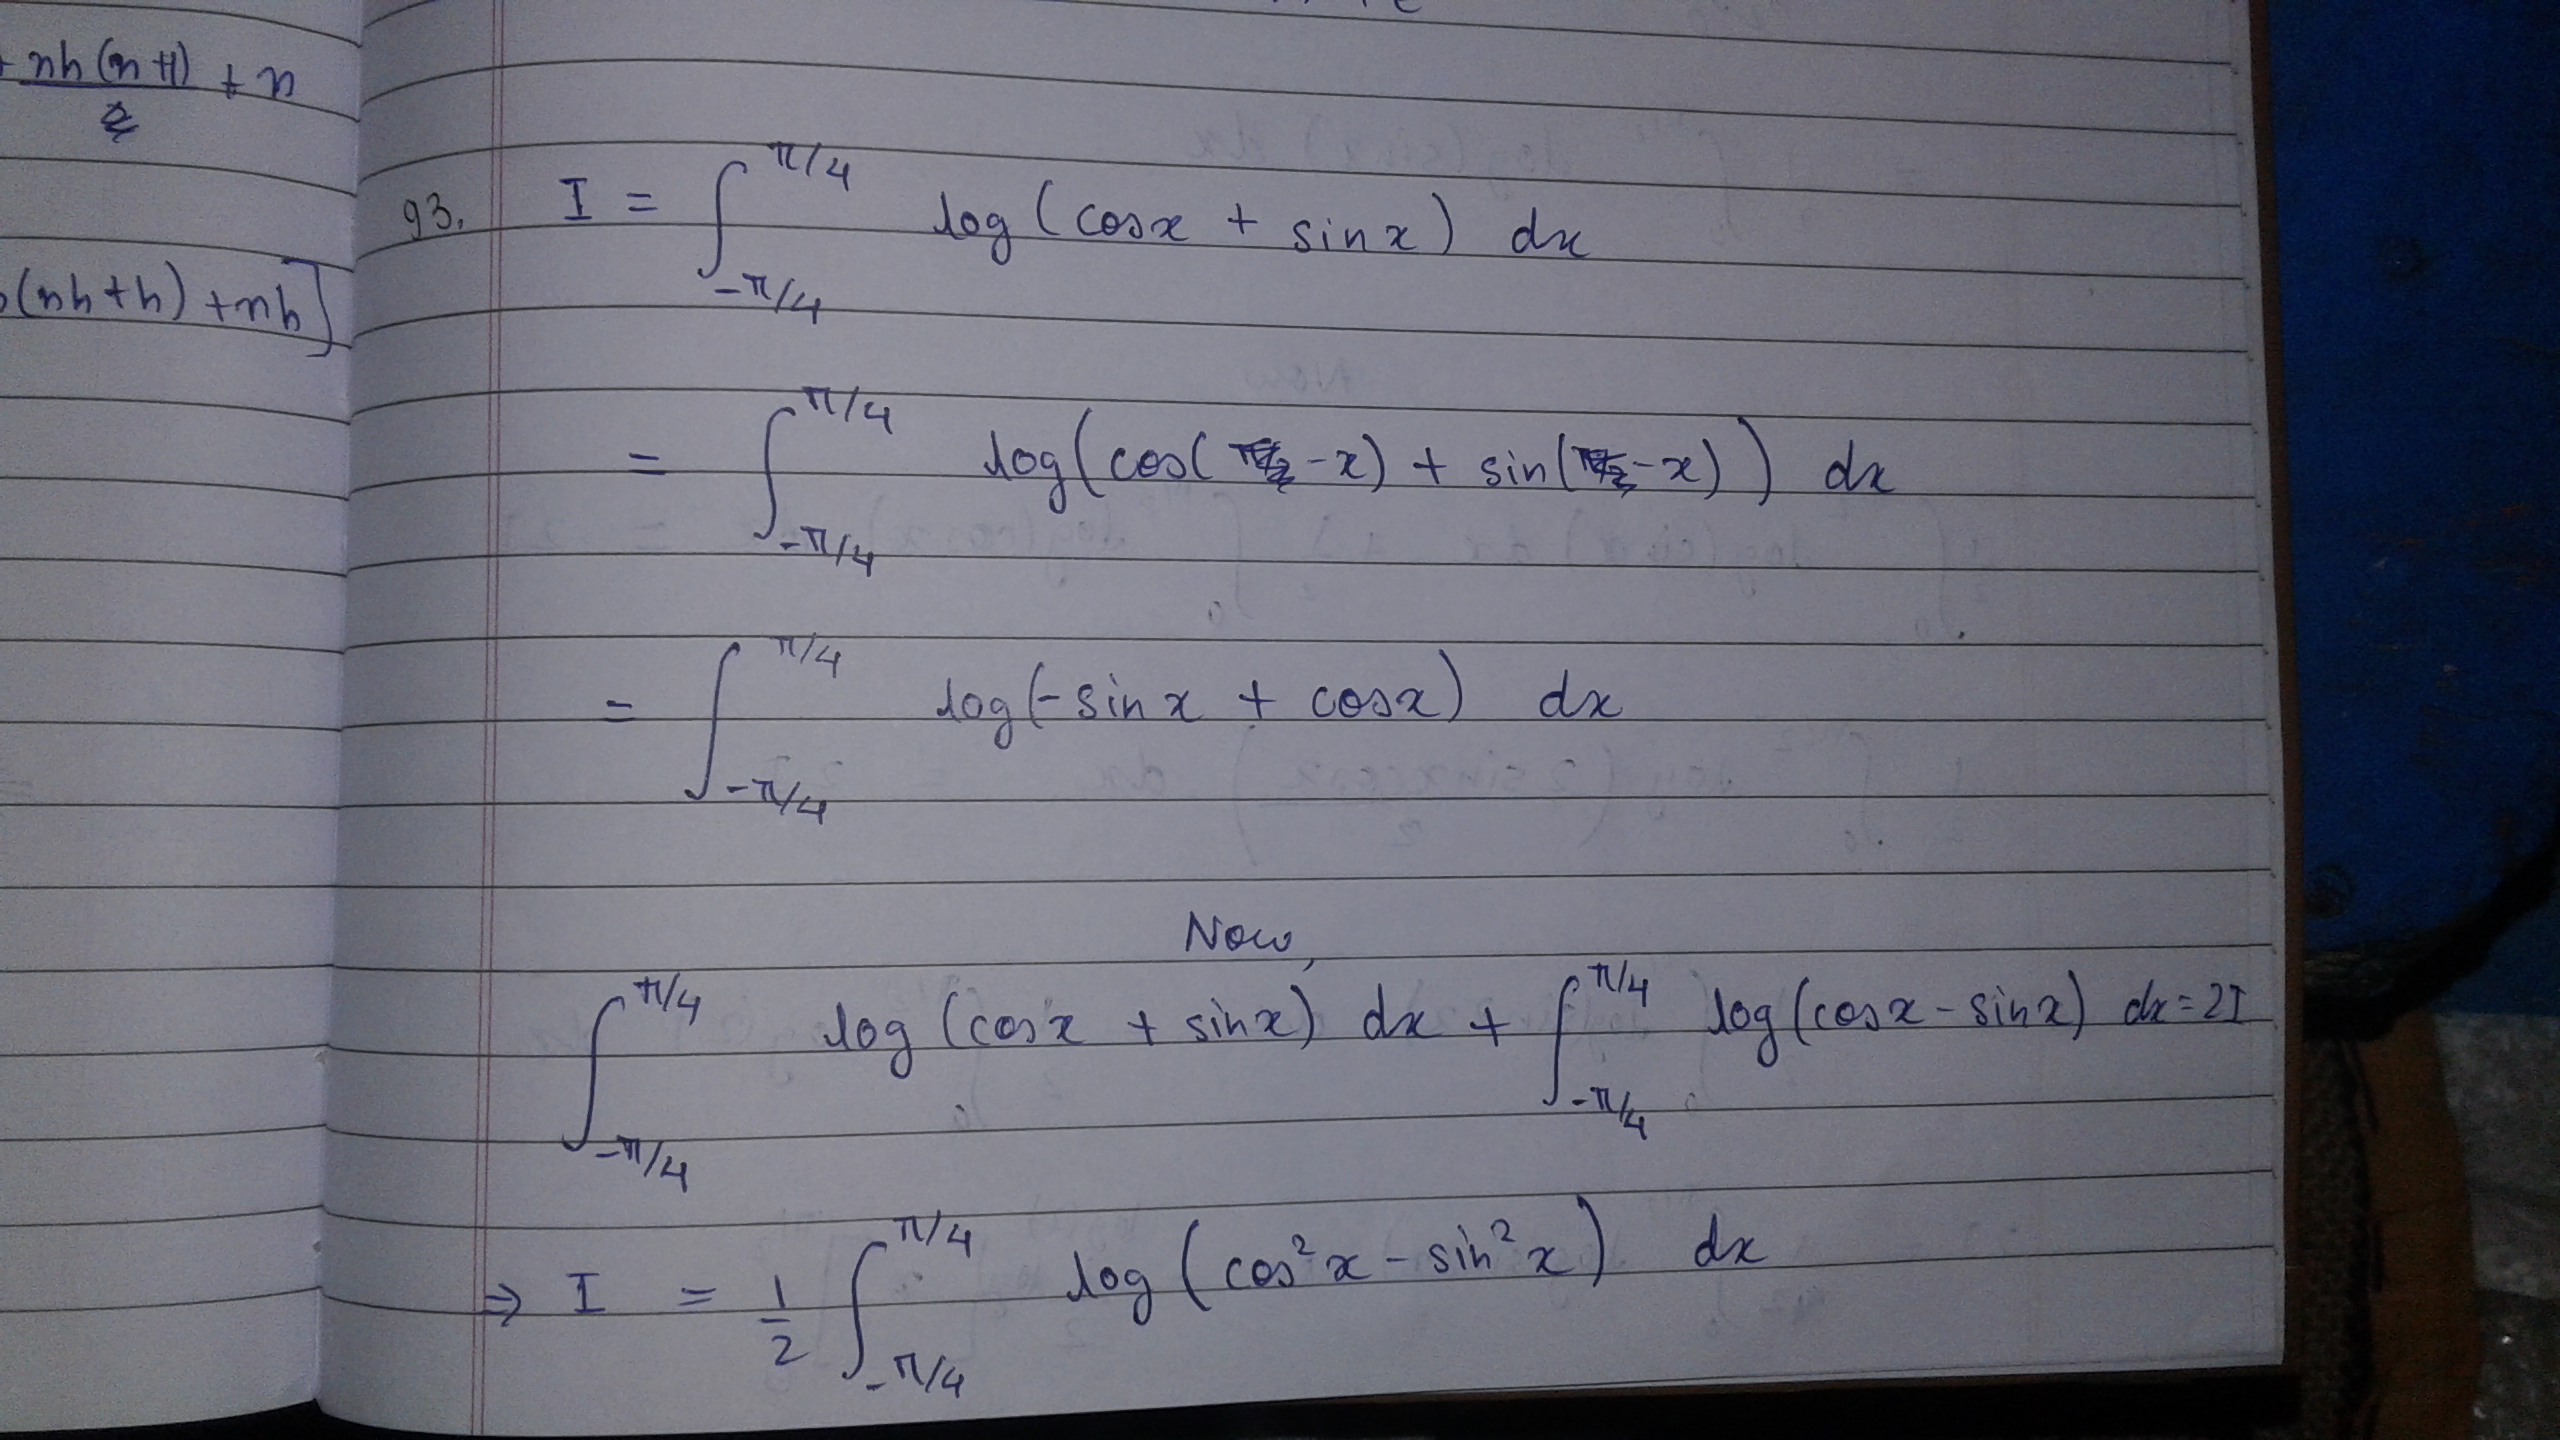 nh(n+1)/2 + n
(nh+h) + nh]
93. I = ∫_{-π/4}^{π/4} log(cosx + sinx) dx
= ∫_{-π/4}^{π/4} log(cos( -x) + sin( -x)) dx
= ∫_{-π/4}^{π/4} log(-sinx + cosx) dx
Now,
∫_{-π/4}^{π/4} log(cosx + sinx) dx + ∫_{-π/4}^{π/4} log(cosx - sinx) dx = 2I
⇒ I = 1/2 ∫_{-π/4}^{π/4} log(cos²x - sin²x) dx